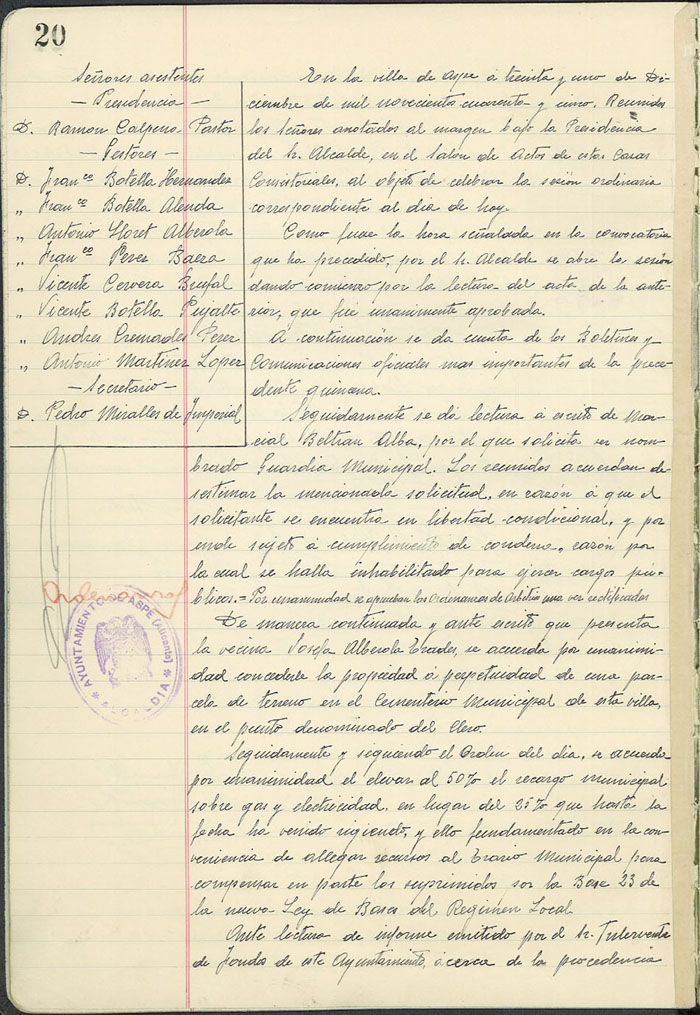 20
Señores asistentes
- Presidencia -
D. Ramon Calpena Pastor
- Gestores -
D. Franco Botella Hernandez
" Franco Botella Alenda
" Antonio Lloret Alberola
" Franco Perez Baeza
" Vicente Cervera Bufal
" Vicente Botella Pujalte
" Andres Cremades Perez
" Antonio Martinez Lopez
- Secretario -
D. Pedro Miralles de Imperial
En la villa de Aspe á treinta y uno de Di-
ciembre de mil novecientos cuarenta y cinco. Reunidos
los Señores anotados al margen bajo la Presidencia
del Sr. Alcalde, en el Salon de Actos de estas Casas
Consistoriales, al objeto de celebrar la sesion ordinaria
correspondiente al dia de hoy.
Como fuese la hora señalada en la convocatoria
que ha precedido, por el Sr. Alcalde se abre la sesion
dando comienzo por la lectura del acta de la ante-
rior, que fué unanimente aprobada.
A continuación se da cuenta de los Boletines y
Comunicaciones oficiales mas importantes de la prece-
dente quincena.
Seguidamente se dá lectura á escrito de Mar-
cial Beltran Alba, por el que solicita ser nom-
brado Guardia Municipal. Los reunidos acuerdan de-
sestimar la mencionada solicitud, en razón á que el
solicitante se encuentra en libertad condicional, y por
ende sujeto á cumplimiento de condena, razón por
la cual se halla inhabilitado para ejercer cargos pú-
blicos.= Por unanimidad se aprueban las Ordenanzas de Arbitrios una vez rectificadas
Ordenanzas
AYUNTAMIENTO DE ASPE (Alicante)
ALCALDIA
De manera continuada y ante escrito que presenta
la vecina Josefa Alberola Prades, se acuerda por unanimi-
dad concederle la propiedad á perpetuidad de una par-
cela de terreno en el Cementerio Municipal de esta villa,
en el punto denominado del Clero.
Seguidamente y siguiendo el Orden del dia, se acuerda
por unanimidad el elevar al 50% el recargo municipal
sobre gas y electricidad, en lugar del 25% que hasta la
fecha ha venido rigiendo, y ello fundamentado en la con-
veniencia de allegar recursos al Erario Municipal para
compensar en parte los suprimidos por la Base 23 de
la nueva Ley de Bases del Regimen Local
Ante lectura de informe emitido por el Sr. Interventor
de Fondos de este Ayuntamiento, ácerca de la procedencia